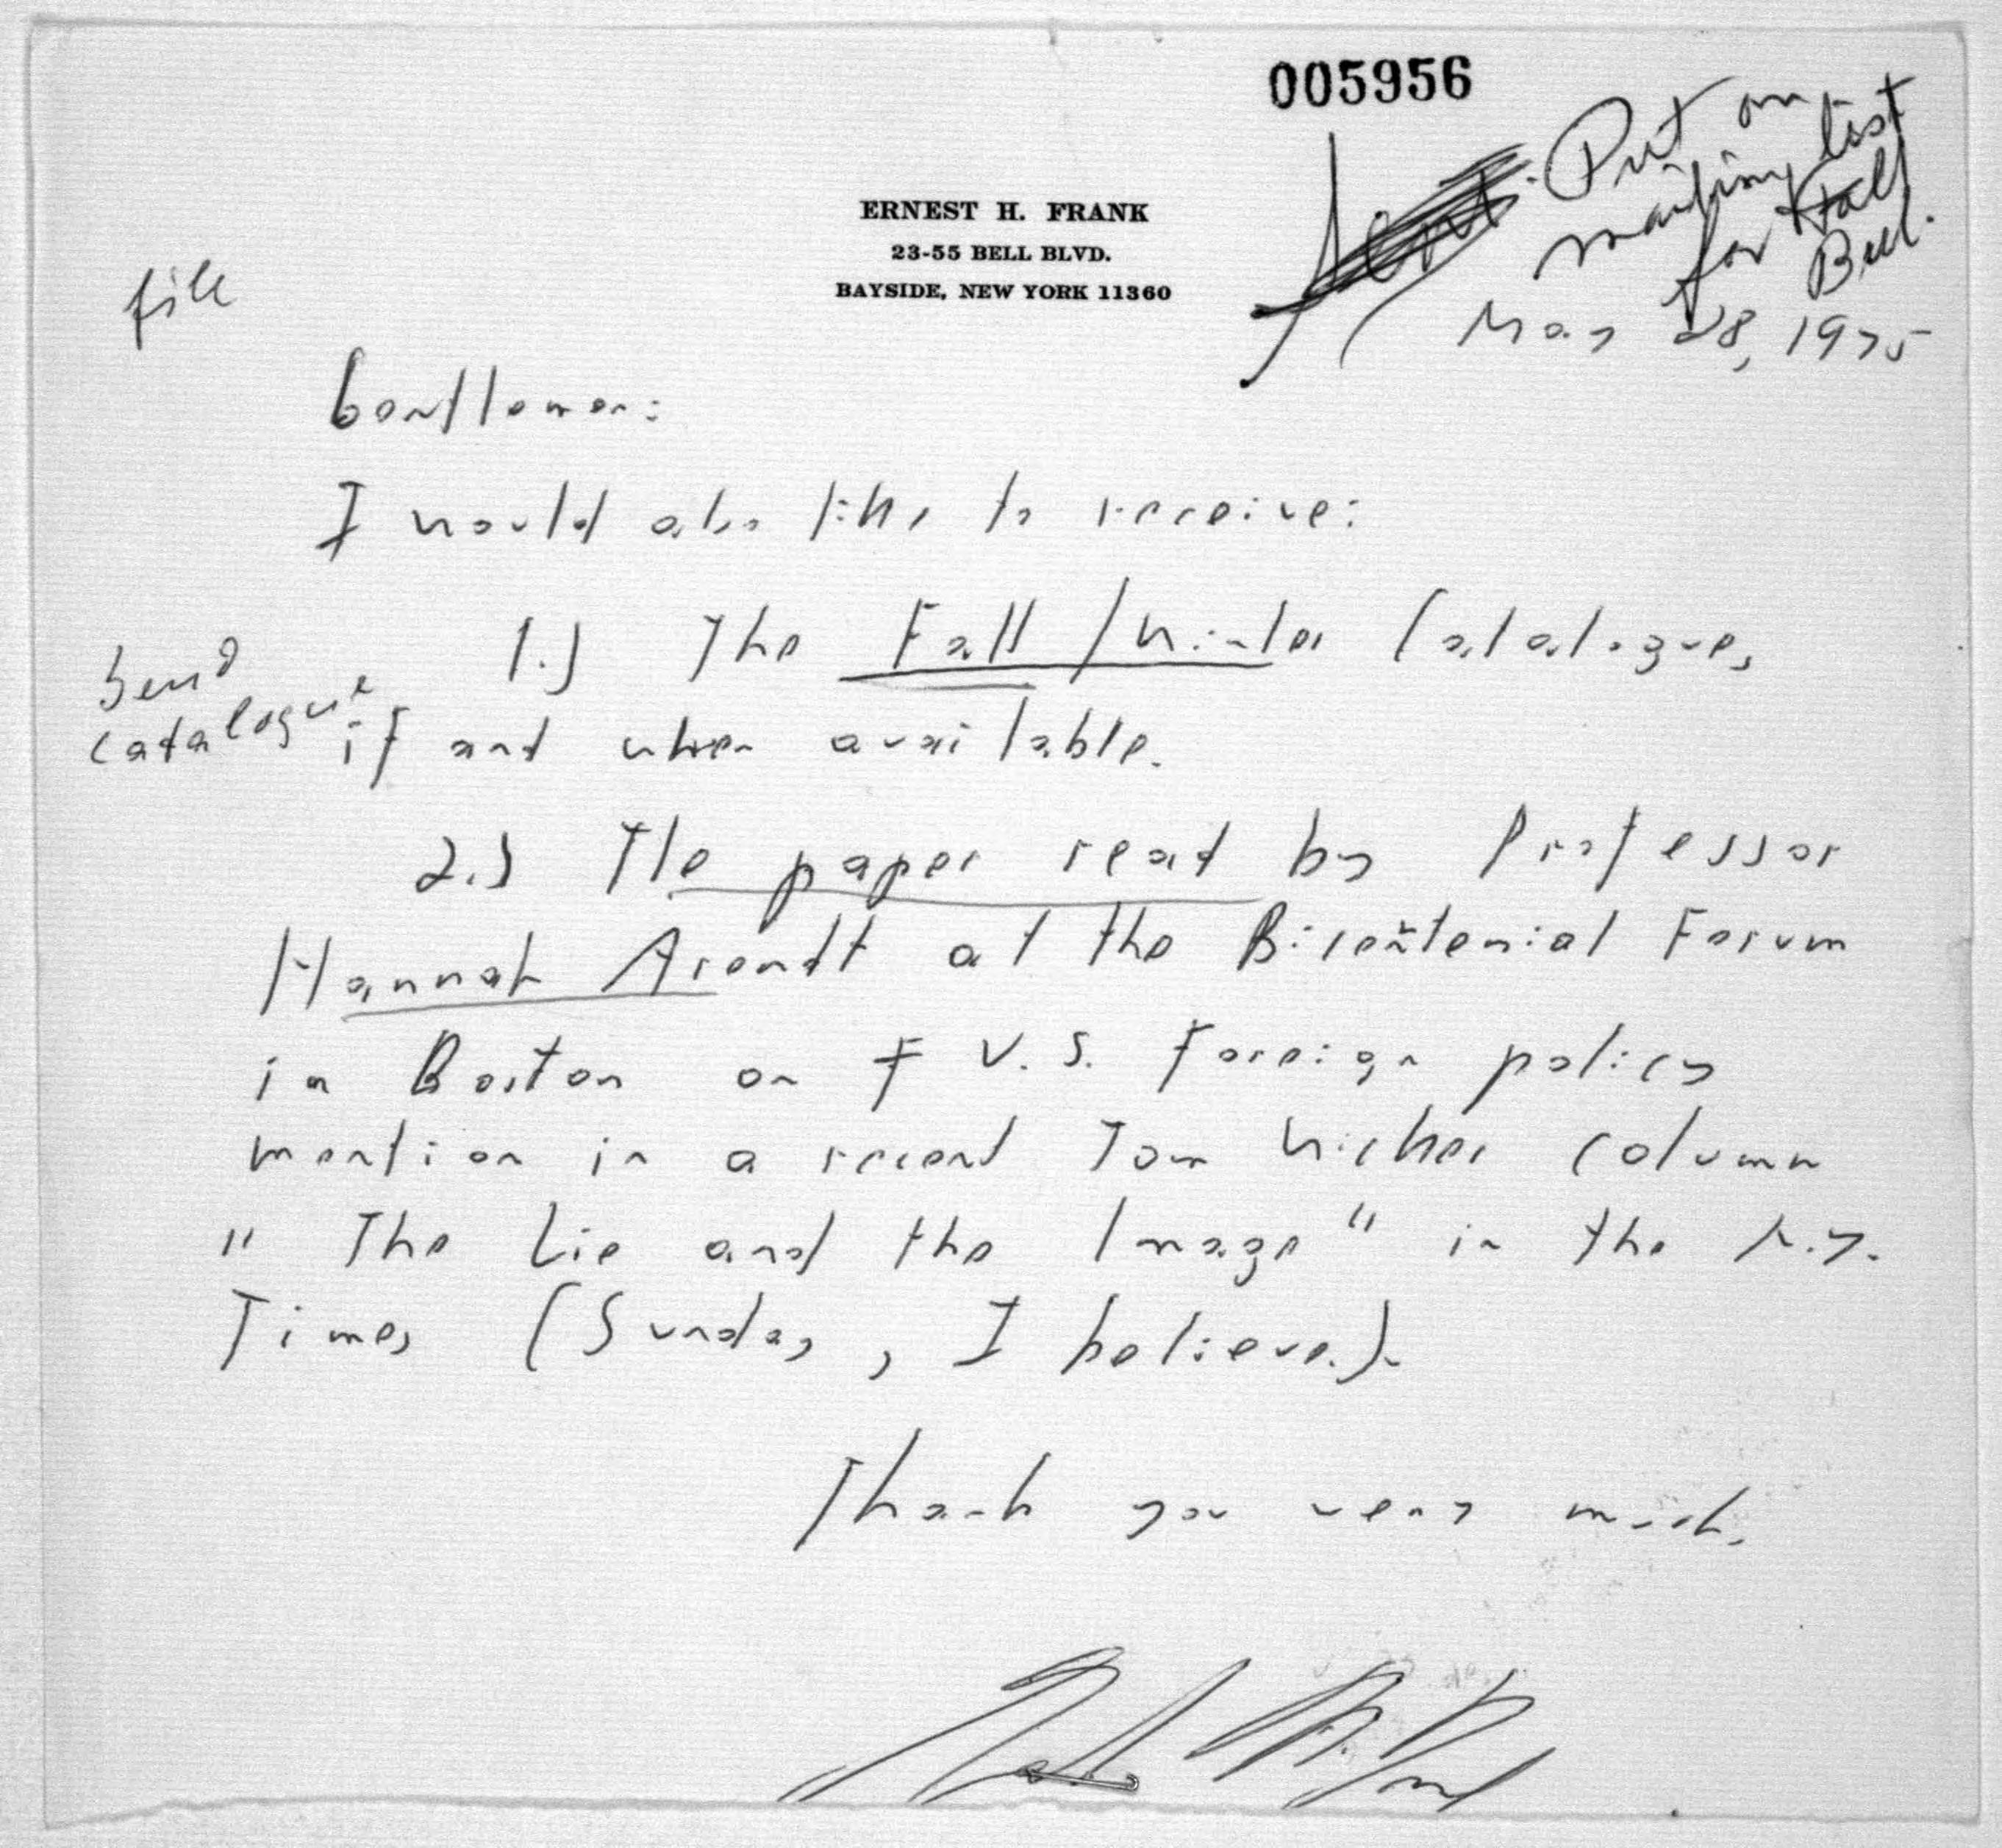 005956
Put on
mailing list
for Fall
Bull.
ERNEST H. FRANK
23-55 BELL BLVD.
BAYSIDE, NEW YORK 11360
file
May 28, 1975
Gentlemen:
I would also like to receive:
1.) The Fall/Winter Catalogue,
send
catalogue
if and when available.
2.) The paper read by Professor
Hannah Arendt at the Bicentenial Forum
in Boston on F U.S. Foreign policy
mention in a recent Tom Wicker column
" The Lie and the Image" in the N.Y.
Times (Sunday, I believe.).
Thank you very much.